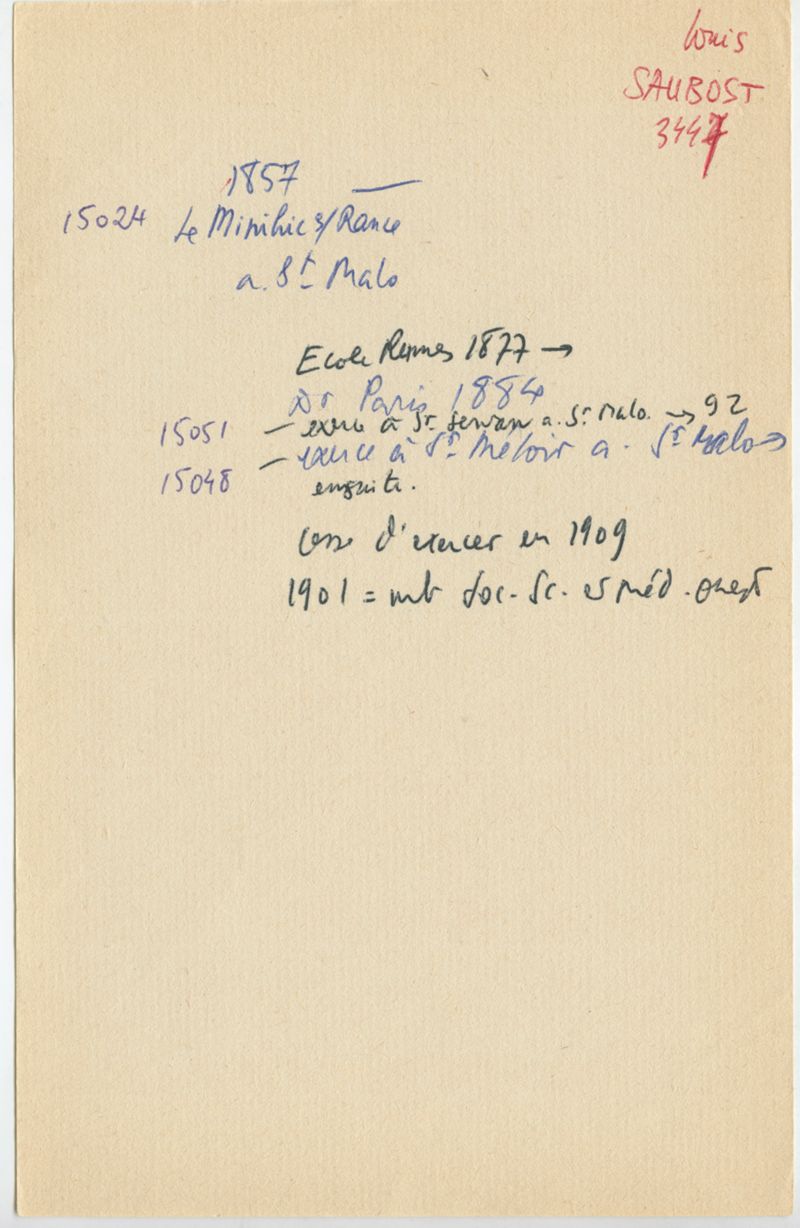 Louis
SAUBOST
3447
1857 —
15024 Le Minihic s/Rance
a. St Malo
Ecole Rennes 1877 →
Dr Paris 1884
15051 — exerce à St. Servan a. St Malo. → 92
15048 — exerce à St Méloir a. St Malo →
ensuite.
cesse d'exercer en 1909
1901 = mb Soc. Sc. et Méd. Ouest